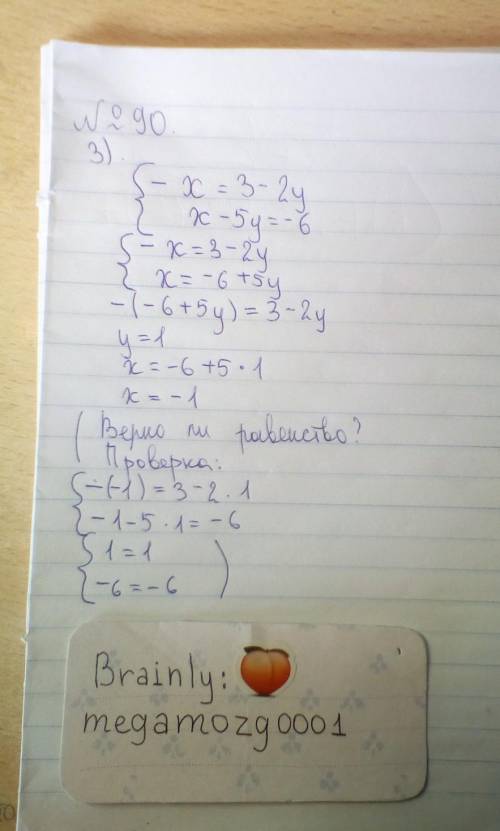 № 90.
3).
{ - x = 3 - 2y
x - 5y = -6
{ - x = 3 - 2y
x = -6 + 5y
-(-6 + 5y) = 3 - 2y
y = 1
x = -6 + 5 · 1
x = -1
( Верно ли равенство?
Проверка:
{ -(-1) = 3 - 2 · 1
-1 - 5 · 1 = -6
{ 1 = 1
-6 = -6 )
Brainly:
megamozg0001